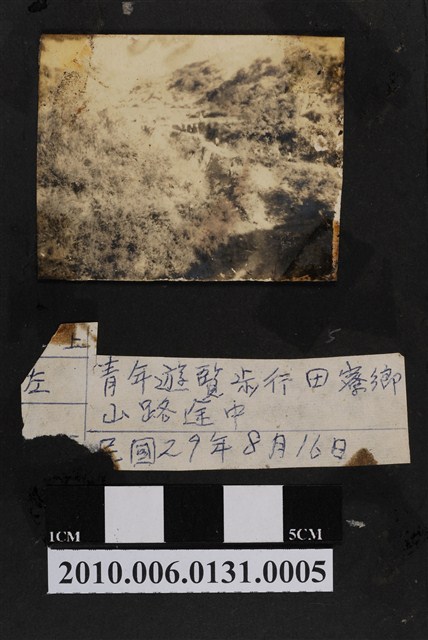 上
左
青年遊覽步行田寮鄉
山路途中
民國29年8月16日
1CM 5CM
2010.006.0131.0005